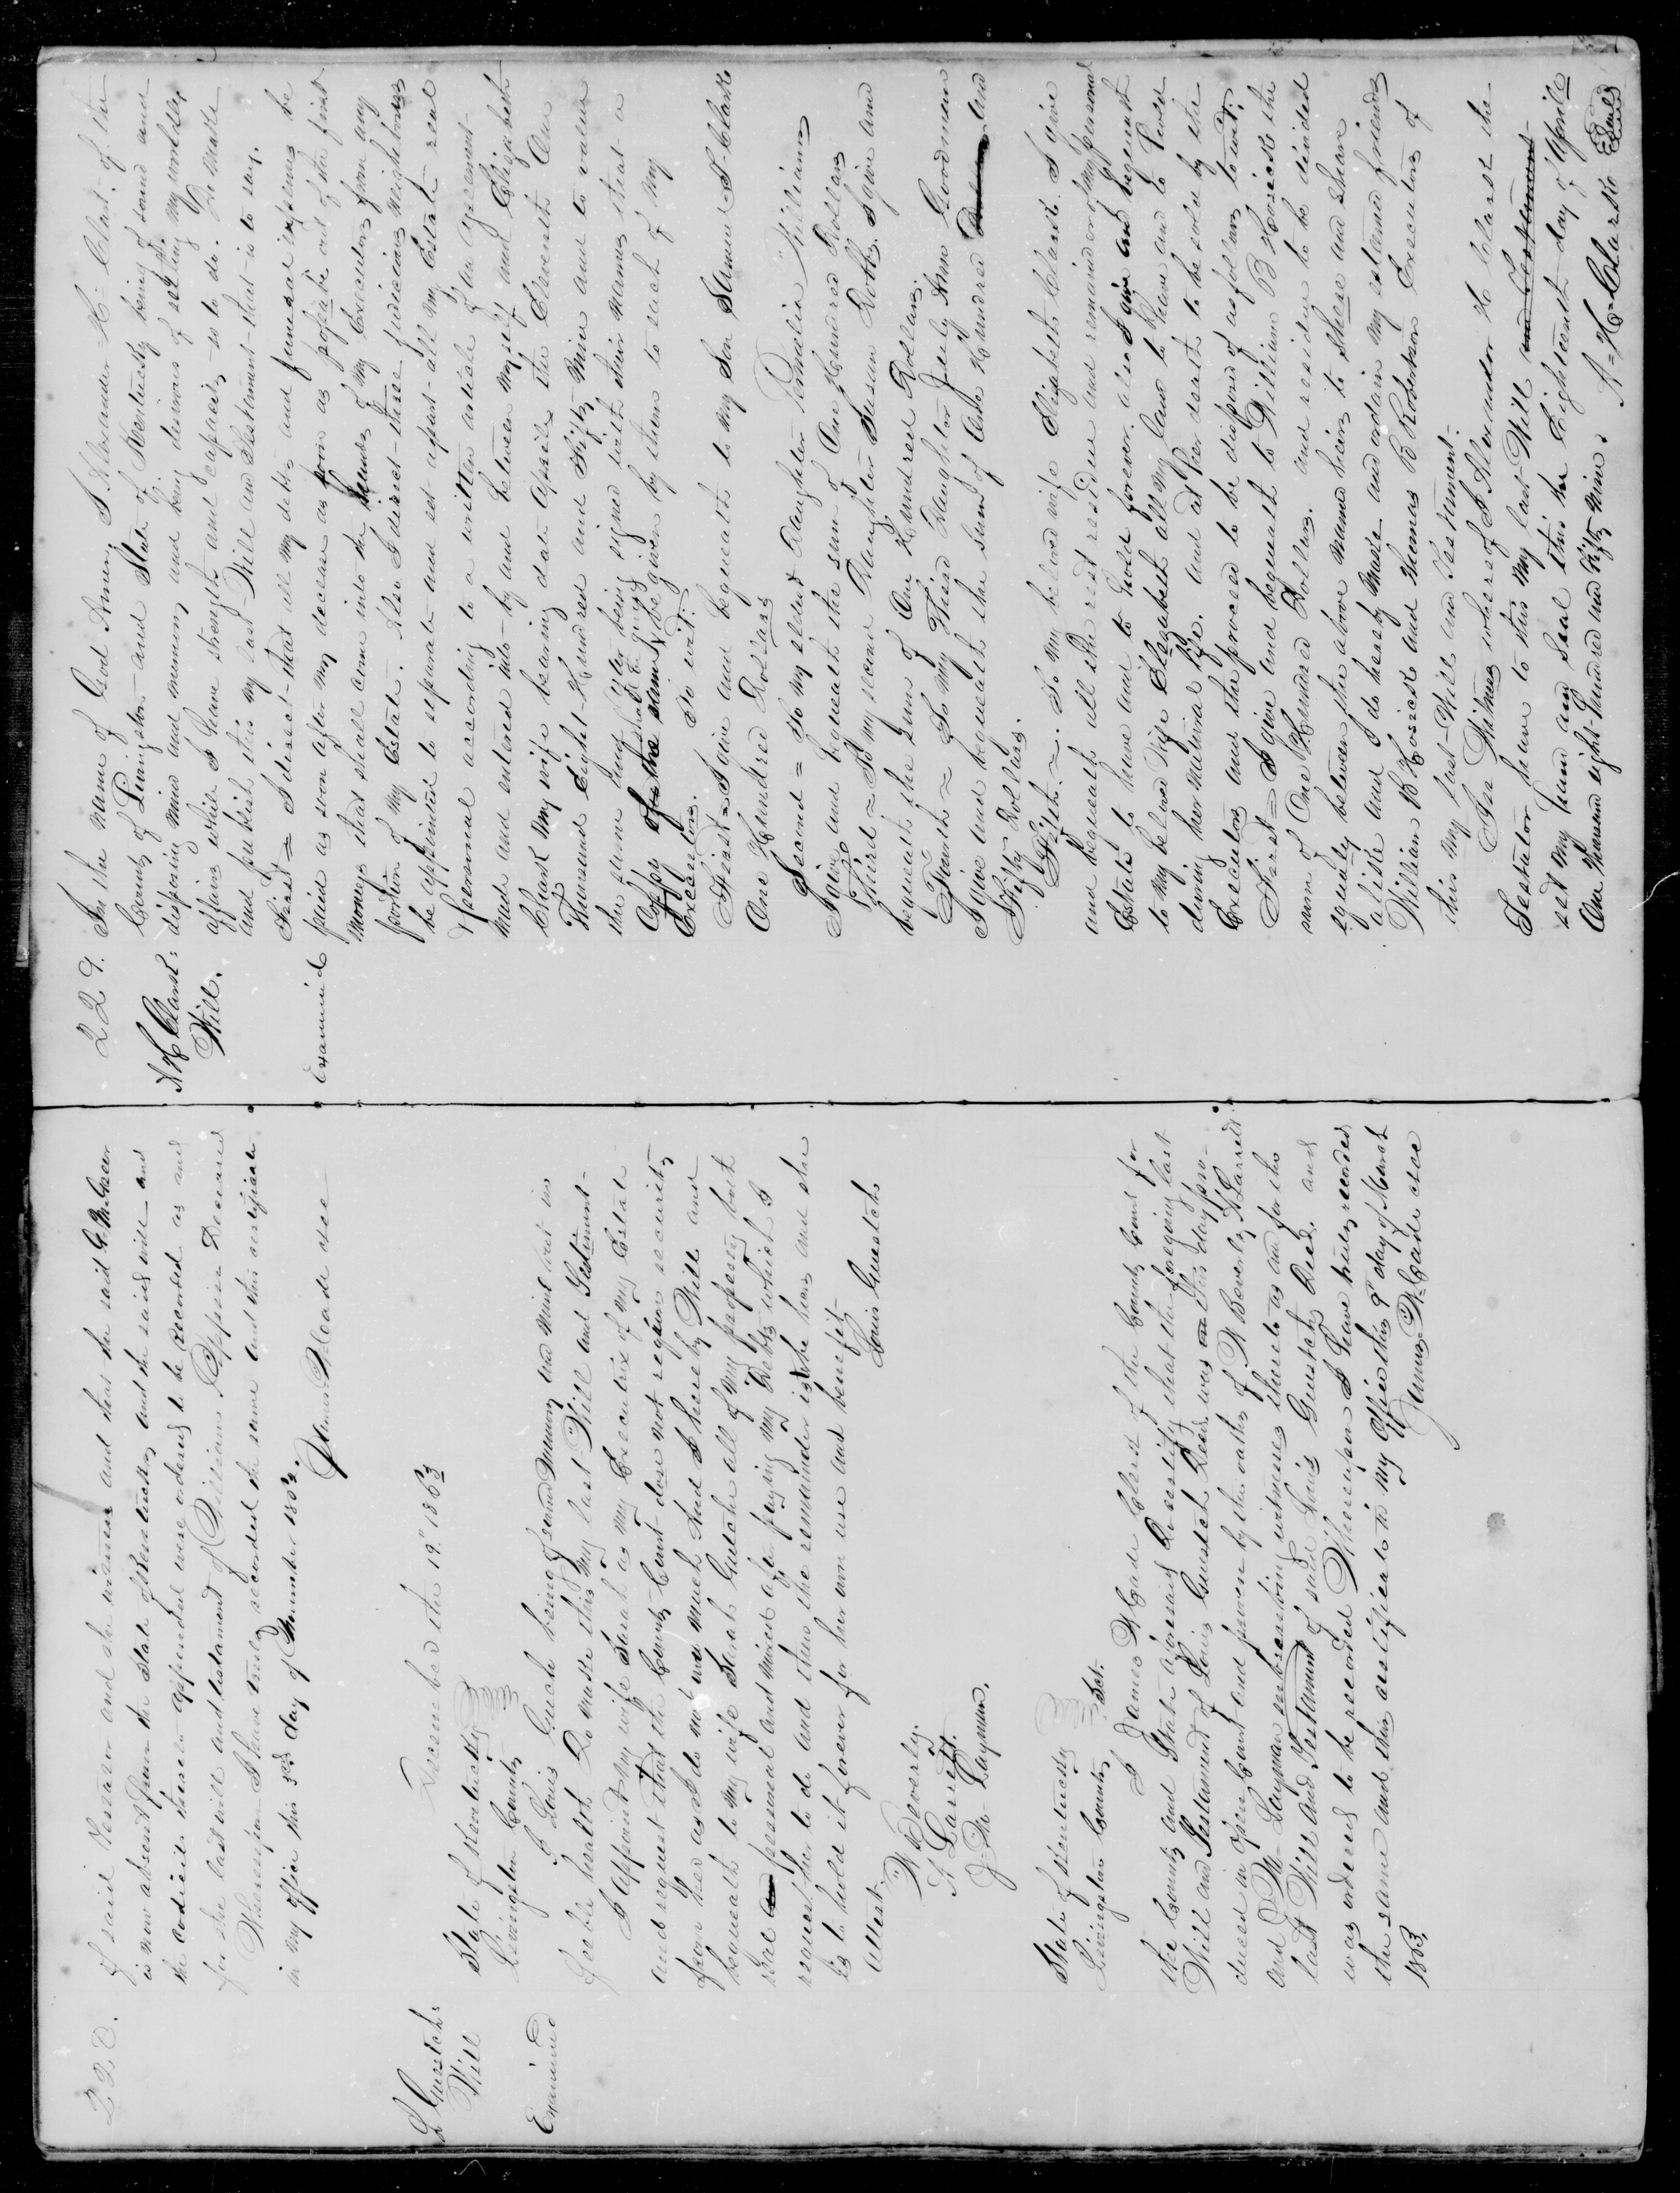 228.
of said Testator and the witnesses and that the said G. McGreer
is now absent from the State of Kentucky, and the said will and
the codicil thereon appended were ordered to be recorded as and
for the last will and testament of William Rappier Deceased
Whereupon I have truly recorded the same and this certificate
in my office this 3rd day of November 1862.
James W Cade clk
L Guestch:
Will
Examined
December the 19" 1862
State of Kentucky
Livingston County
I Louis Guich being of sound memory and mind but in
feeble health Do make this my last Will and Testiment-
I appoint my wife Sarah as my Executrix of my Estate
and request that the County Court does not require security
from her as I do not owe much And I hereby Will and
bequeath to my wife Sarah Gutche all of my property both
real and personal and mixed after paying my Debts which I
request her to do and then the remainder is to be hers and she
is to hold it forever for her own use and benefit-
Attest- Louis Guestch
W Beverly.
A Larrett.
J. M. Layman.
State of Kentucky
Livingston County Sct.
I James W Cade Clerk of the County Court for
the County and State aforesaid Do certify that the foregoing last
Will and Testament of Louis Guestch Decd was on this day pro-
duced in open Court and proven by the oaths of W Beverly, A Larrett
and J M- Layman subscribing witnesses thereto as and for the
last Will and Testament of said Louis Guestch Decd. and
was ordered to be recorded Whereupon I have truly recorded
the same and this certificate in my office this 9 day of March
1863.
James W Cade clk
229.
A H Clark:
Will.
Examined
In the name of God Amen, I Alexander H- Clark- of the
County of Livingston and State of Kentucky being of sound and
disposing mind and memory and being desirous of setling my worldly
affairs while I have strength and capacity so to do. Do make
and publish this my last Will and Testament- that is to say.
First = I direct- that all my debts and funeral expenses be
paid as soon after my decease as soon as posable out of the first
moneys that shall come into the hands of my Executors from any
portion of my Estate. Also I direct- three judicious neighbours
be appointed to seperate and set-apart- all my Estate real
& personal according to a written article of an agreement-
made and entered into- by and between myself and Elizabeth
Clark my wife bearing date Aprile the Eleventh One
Thousand Eight-Hundred and Fifty Nine and to value
the same and after being signed with their names that- a
Coppy of the same be given by them to each of my
Executors. To wit.
First = I give and bequeath to my Son James S- Clark
One Hundred Dollars
Second = To my eldest Daughter Permelia Williams
I give and bequeath the sum of One Hundred Dollars
Third = To my second Daughter Susan Roth. I give and
bequeath the Sum of One Hundred Dollars.
Fourth = To my Third Daughter July Ann Goodman
I give and bequeath the sum of One Hundred and
Fifty Dollars.
Fifth. = To my beloved wife Elizabeth Clark I give
and bequeath all the rest residue and remainder of my personal
Estate to have and to hold forever. also I give and bequeath
to my beloved Wife Elizabeth all my land to Have and to Hold
during her natural life. and at her death to be sold by the
Executors and the proceed to be disposed of as follows to wit.
First= I give and bequeath to William B Hosick the
sum of One Hundred Dollars. and residue to be divided
equally between the above named heirs to Share and Share
alike And I do hereby make and ordain my esteemed friends
William B Hosick and Thomas B Robertson Executors of
this my last-Will and Testament.
In Witness whereof I Alexander H Clark the
Testator have to this my last-Will and Testament-
set my hand and Seal this the Eighteenth day of Aprile
One Thousand eight-hundred and fifty Nine.
A=H=Clark Seal